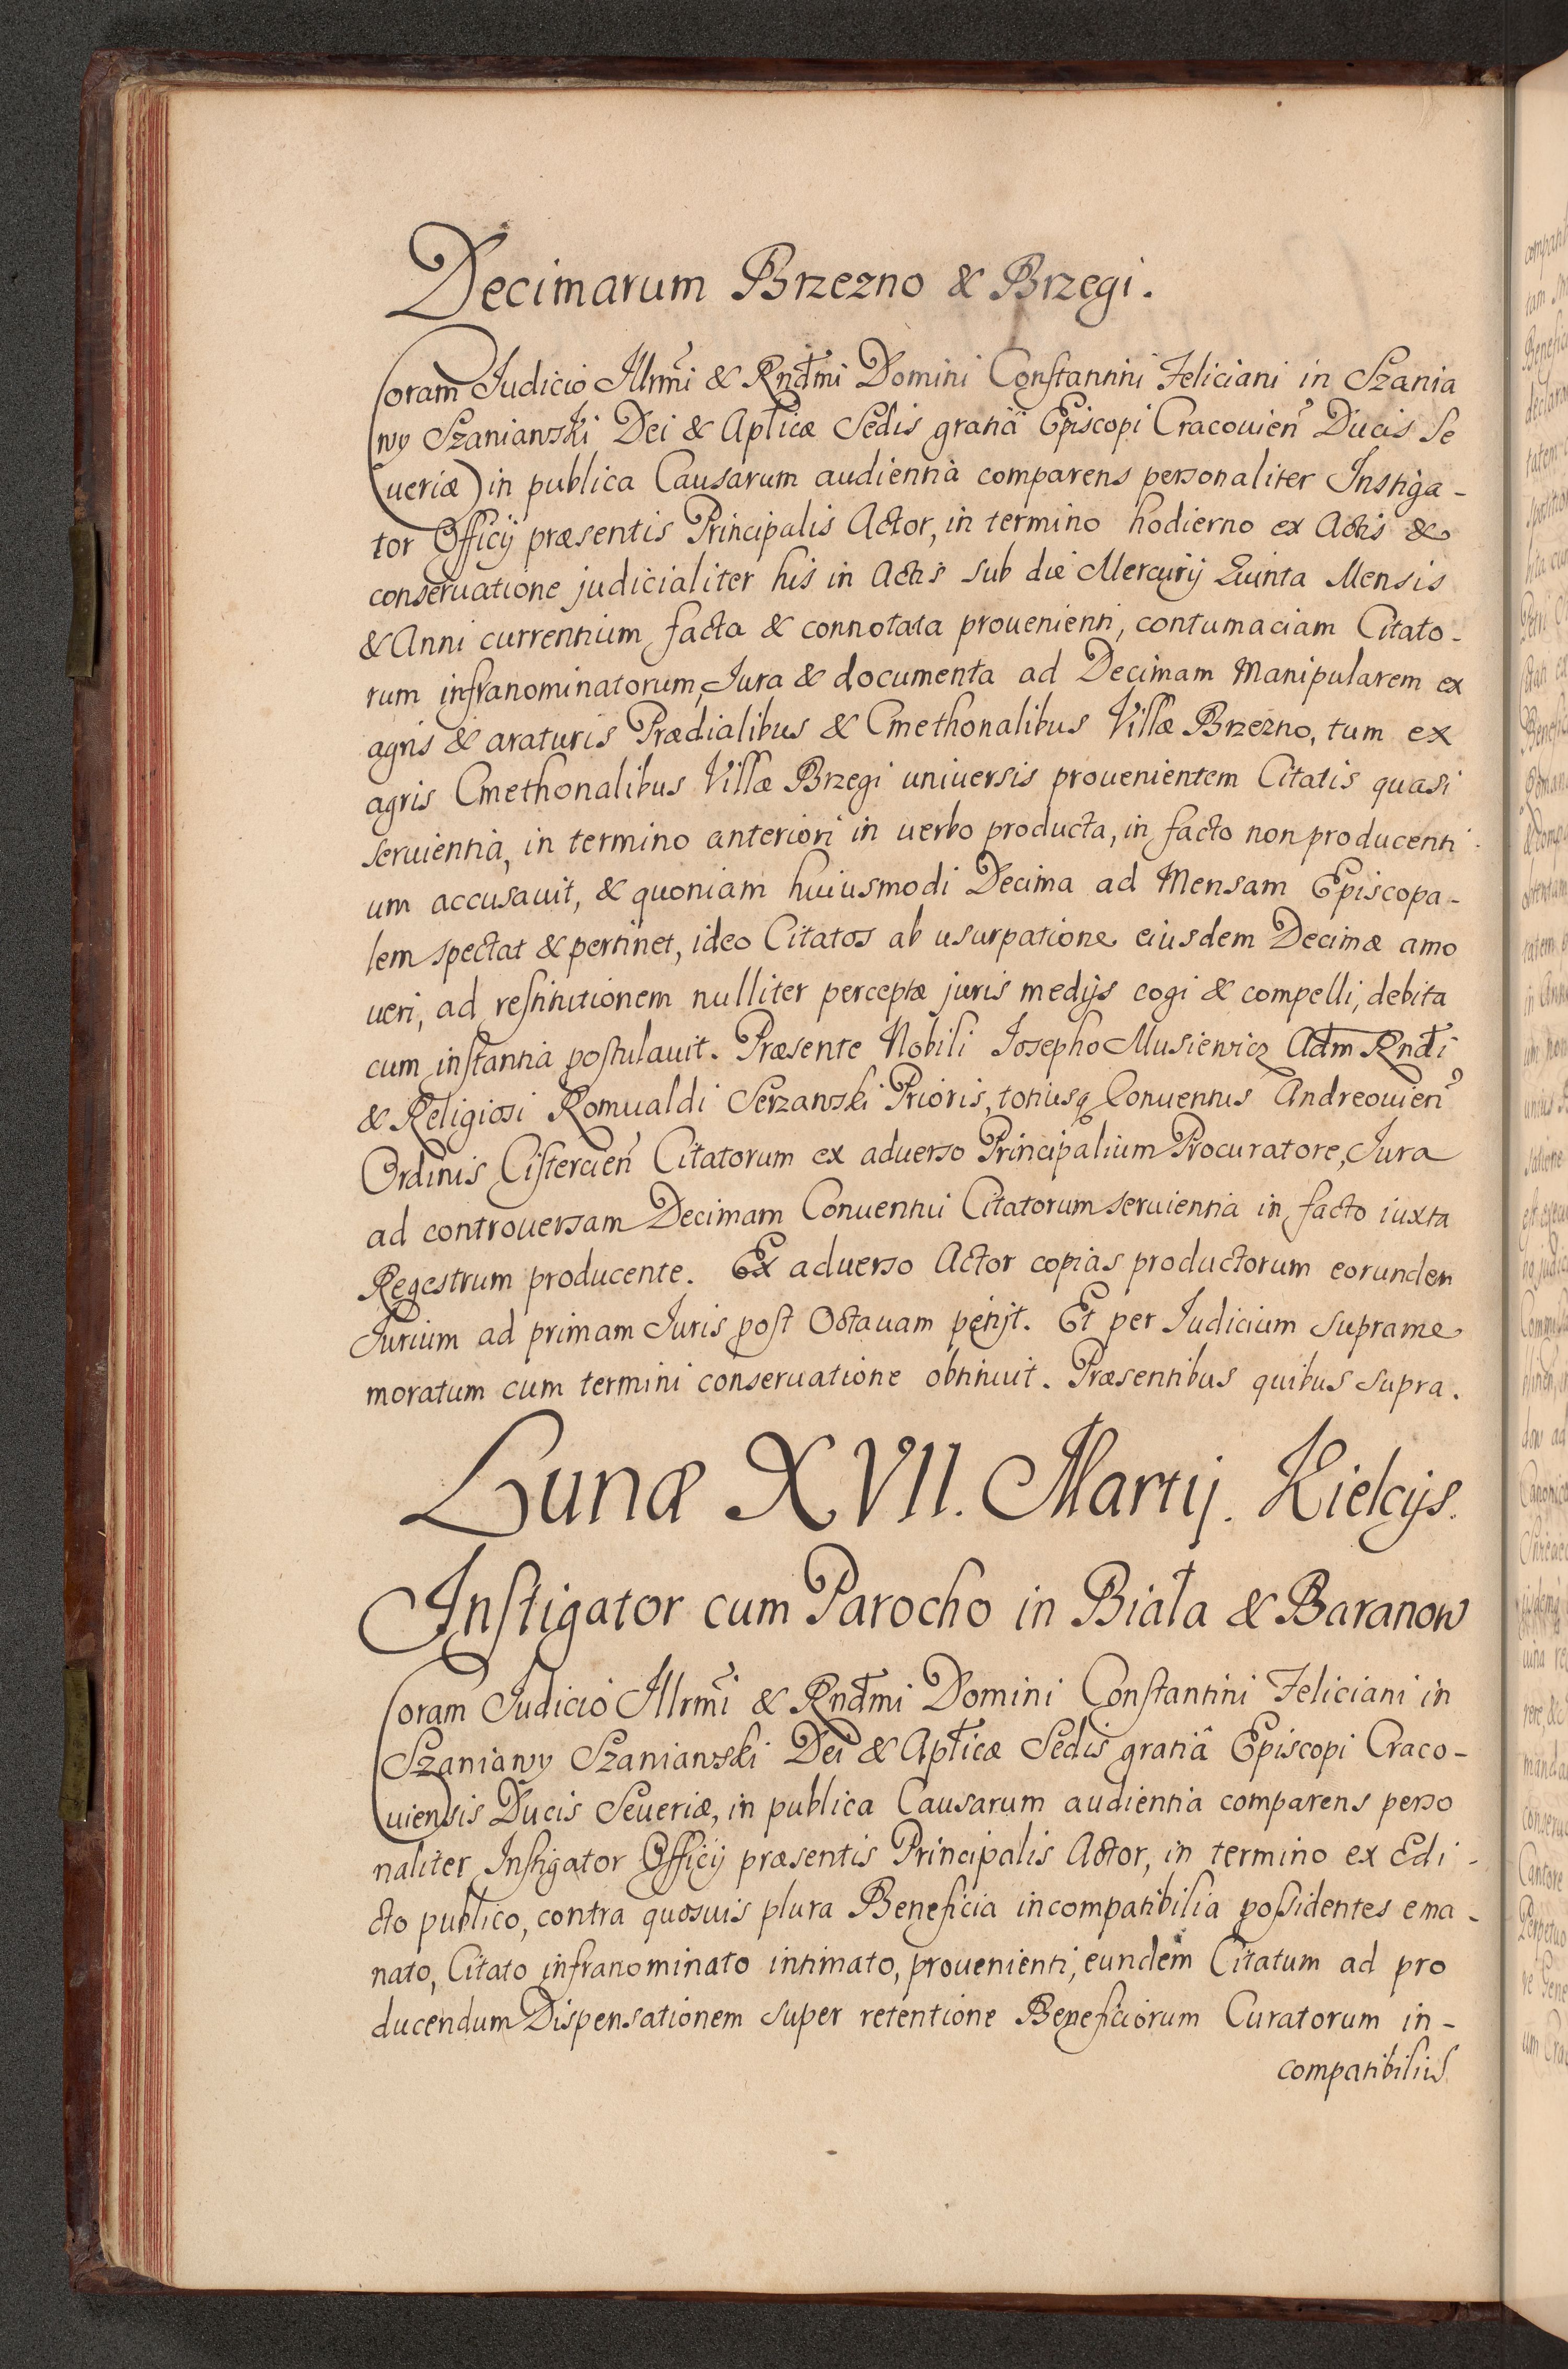 Decimarum Brzezno & Brzegi.
Coram Judicio Illrmi & Rndmi Domini Constantini Feliciani in Szania
wy Szaniawski Dei & Aplicæ Sedis gratiâ Episcopi Cracouien Ducis Se
ueriæ) in publica Causarum audientia comparens personaliter Instiga-
tor Officij præsentis Principalis Actor, in termino hodierno ex Actis &
conseruatione judicialiter his in Actis sub die Mercurij Quinta Mensis
& Anni currentium facta & connotata prouenienti, contumaciam Citato-
rum infranominatorum, Jura & documenta ad Decimam Manipularem ex
agris & araturis Prædialibus & Cmethonalibus Villæ Brzezno, tum ex
agris Cmethonalibus Villæ Brzegi uniuersis prouenientem Citatis quasi
seruientia, in termino anteriori in uerbo producta, in facto non producenti-
um accusauit, & quoniam huiusmodi Decima ad Mensam Episcopa-
lem spectat & pertinet, ideo Citatos ab usurpatione eiusdem Decimæ amo
ueri, ad restitutionem nulliter perceptæ juris medijs cogi & compelli, debita
cum instantia postulauit. Præsente Nobili Josepho Musiewicz Adm Rndi
& Religiosi Romualdi Serzawski Prioris, totiusq Conuentus Andreouien
Ordinis Cistercien Citatorum ex aduerso Principalium Procuratore, Jura
ad controuersam Decimam Conuentui Citatorum seruientia in facto iuxta
Regestrum producente. Ex aduerso Actor copias productorum eorundem
Jurium ad primam Juris post Octauam petijt. Et per Judicium suprame
moratum cum termini conseruatione obtinuit. Præsentibus quibus supra.
Lunæ XVII. Martij. Kielcijs.
Instigator cum Parocho in Biała & Baranow
Coram Judicio Illrmi & Rndmi Domini Constantini Feliciani in
Szaniawy Szaniawski Dei & Aplicæ Sedis gratiâ Episcopi Craco-
uiensis Ducis Seueriæ, in publica Causarum audientia comparens perso
naliter Instigator Officij præsentis Principalis Actor, in termino ex Edi-
cto publico, contra quosuis plura Beneficia incompatibilia possidentes ema-
nato, Citato infranominato intimato, prouenienti, eundem Citatum ad pro
ducendum Dispensationem super retentione Beneficiorum Curatorum in-
compatibiliū